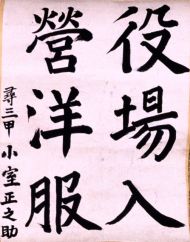 役場入
營洋服
尋三甲 小室正之助